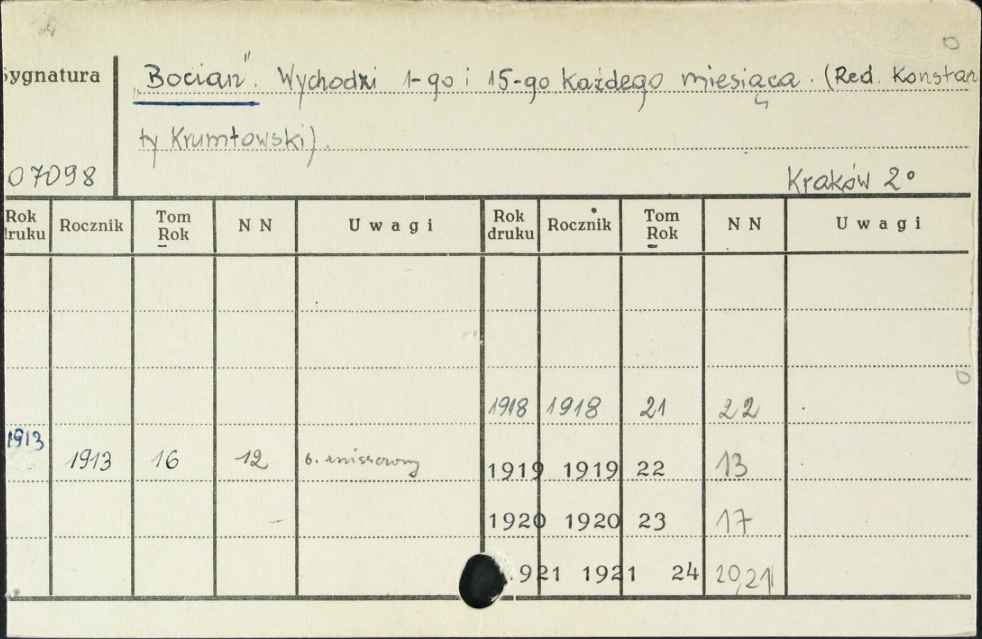 Sygnatura
„Bocian". Wychodzi 1-go i 15-go każdego miesiąca. (Red. Konstan
ty Krumłowski).
07098
Kraków 2°
Rok druku Rocznik Tom Rok NN Uwagi Rok druku Rocznik Tom Rok NN Uwagi
1918 1918 21 22
1913 1913 16 12 b.
1919 1919 22 13
1920 1920 23 17
1921 1921 24 20,21